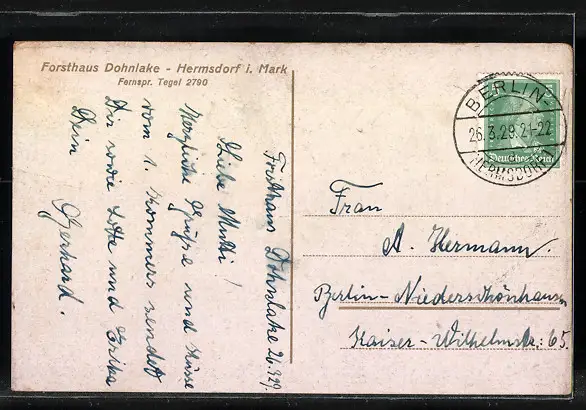 Forsthaus Dohnlake - Hermsdorf i. Mark
Fernspr. Tegel 2790
Forsthaus Dohnlake 26.3.29.
Liebe Mutti!
Herzliche Grüße und Küsse
vom 1. Kommers sendet
Dir sowie Lotte und Erika
Dein
Gerhard.
BERLIN-
26.3.29.21-22
HERMSDORF
Deutsches Reich
Frau
A. Hermann.
Berlin-Niederschönhausen
Kaiser-Wilhelmstr: 65.